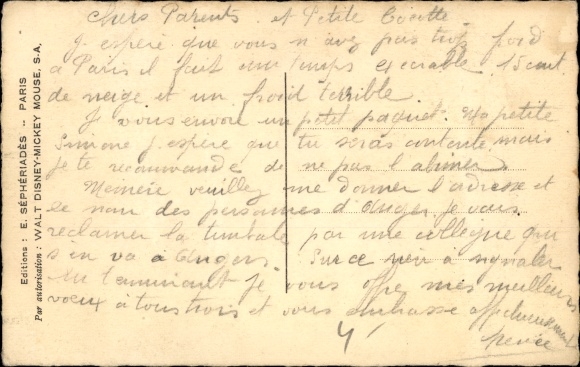 Chers Parents et Petite Cocotte
J espère que vous n avez pas trop froid
a Paris il fait un temps execrable 15 cent
de neige et un froid terrible
Je vous envoie un petit paquet. Ma petite
Simone j espère que tu seras contente mais
je te recommande de ne pas l abimer
veuillez me donner l'adresse et
le nom des personnes d'Anger je vais
reclamer la timbale par une collegue qui
s'en va à Angers Sur ce rien a signaler
En terminant je vous offre mes meilleurs
voeux à tous trois et vous embrasse affectueusement
Renée
Editions : E. SÉPHÉRIADÈS -- PARIS
Par autorisation : WALT DISNEY-MICKEY MOUSE, S-A,